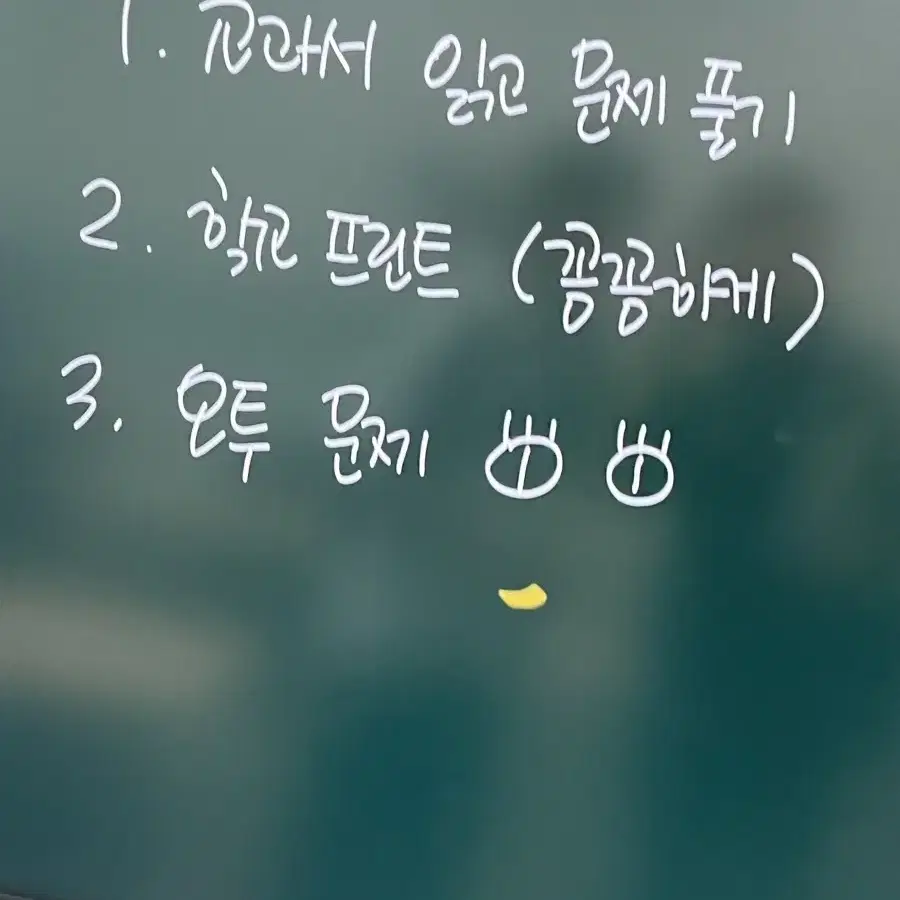 1. 교과서 읽고 문제 풀기
2. 학교 프린트 (꽁꽁하게)
3. 오투 문제